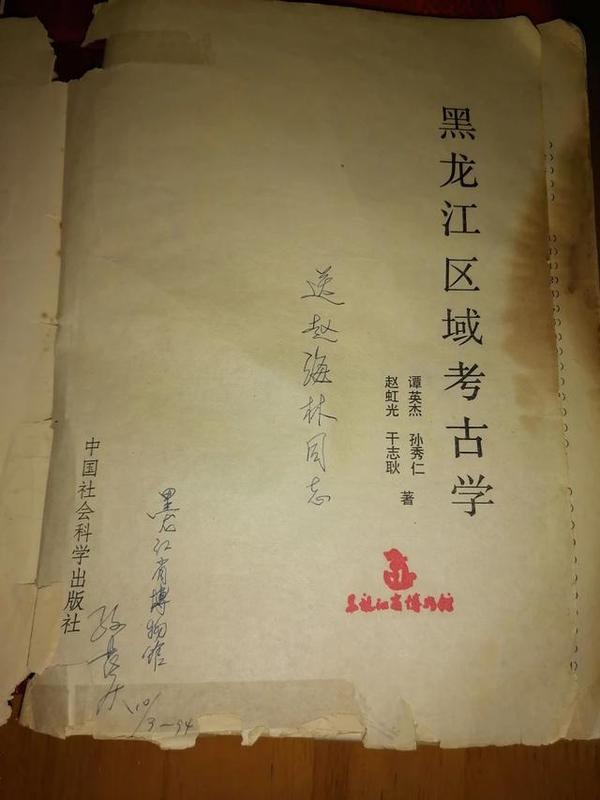 黑龙江区域考古学
谭英杰 孙秀仁
赵虹光 干志耿
著
送赵海林同志
黑龙江省博物馆
黑龙江省博物馆
10/3-94
中国社会科学出版社